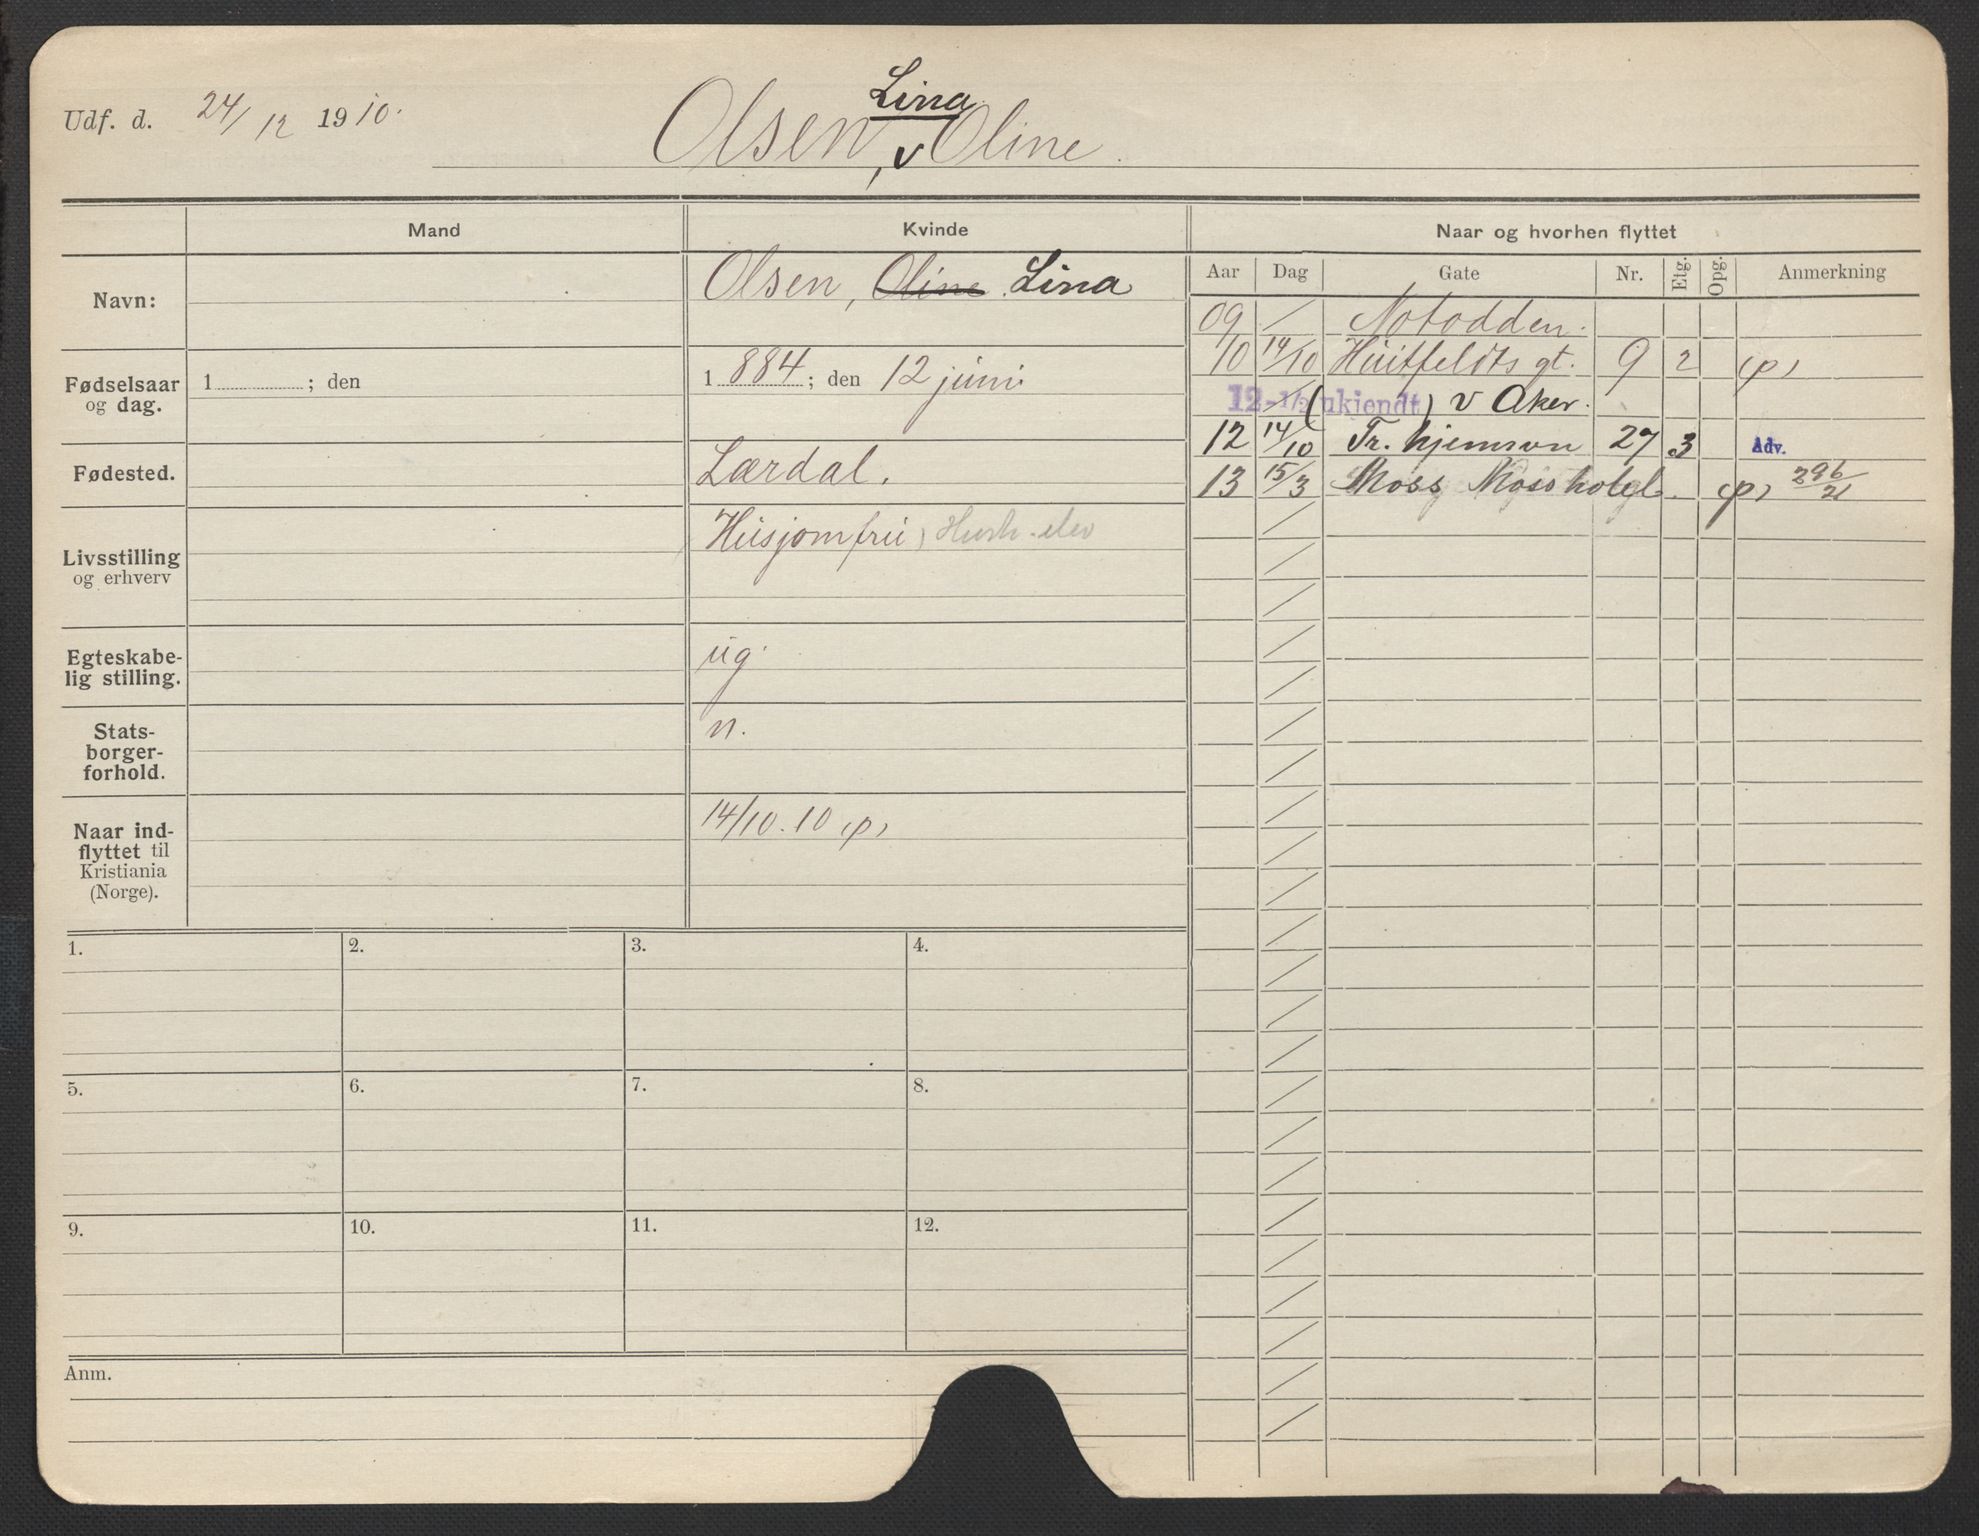 Udf. d. 24/12 1910.
Lina
Olsen, v Oline.
Mand
Kvinde
Naar og hvorhen flyttet
Aar Dag Gate Nr. Etg. Opg. Anmerkning
Navn:
Olsen, Oline Lina
Fødselsaar og dag.
1 ; den
1 884 ; den 12 juni
Fødested.
Lærdal.
Livsstilling og erhverv
Husjomfru
Egteskabe-
lig stilling.
ug.
Stats-
borger-
forhold.
n.
Naar ind-
flyttet til
Kristiania
(Norge).
14/10.10 (p)
09 / Notodden.
10 14/10 Huitfeldts gt. 9 2 (p)
12 - 1/2 (ukjendt) v Aker.
12 14/10 Tr. hjemsvn 27 3 Adv.
13 15/3 Moss (p) 296/21
1. 2. 3. 4.
5. 6. 7. 8.
9. 10. 11. 12.
Anm.